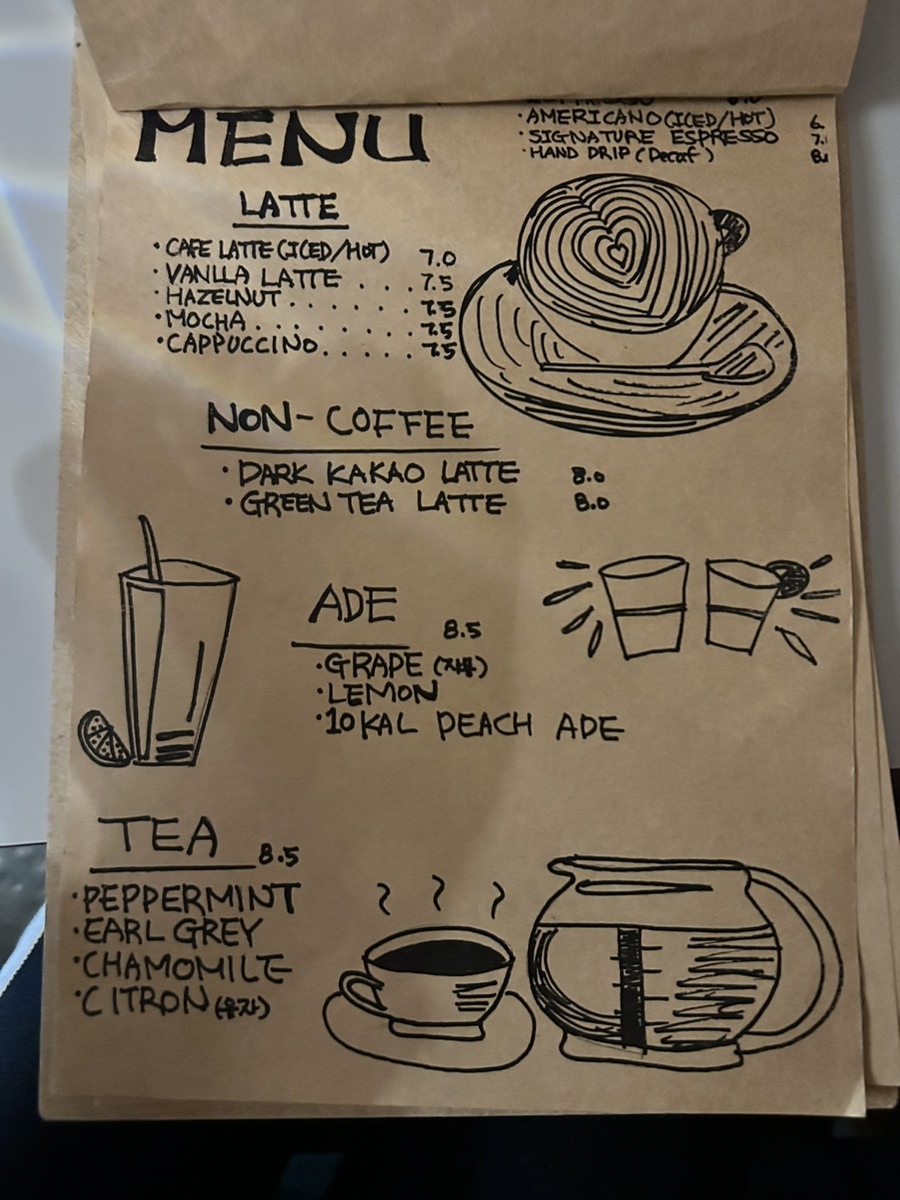 MENU
· AMERICANO (ICED/HOT) 6.
· SIGNATURE ESPRESSO 7.
· HAND DRIP (Decaf) 8.
LATTE
· CAFE LATTE (ICED/HOT) 7.0
· VANLLA LATTE . . . 7.5
· HAZELNUT . . . . . . 7.5
· MOCHA . . . . . . . . 7.5
· CAPPUCCINO. . . . . 7.5
NON-COFFEE
· DARK KAKAO LATTE 8.0
· GREEN TEA LATTE 8.0
ADE 8.5
· GRAPE (자몽)
· LEMON
· 10KAL PEACH ADE
TEA 8.5
· PEPPERMINT
· EARL GREY
· CHAMOMILE
· CITRON (유자)